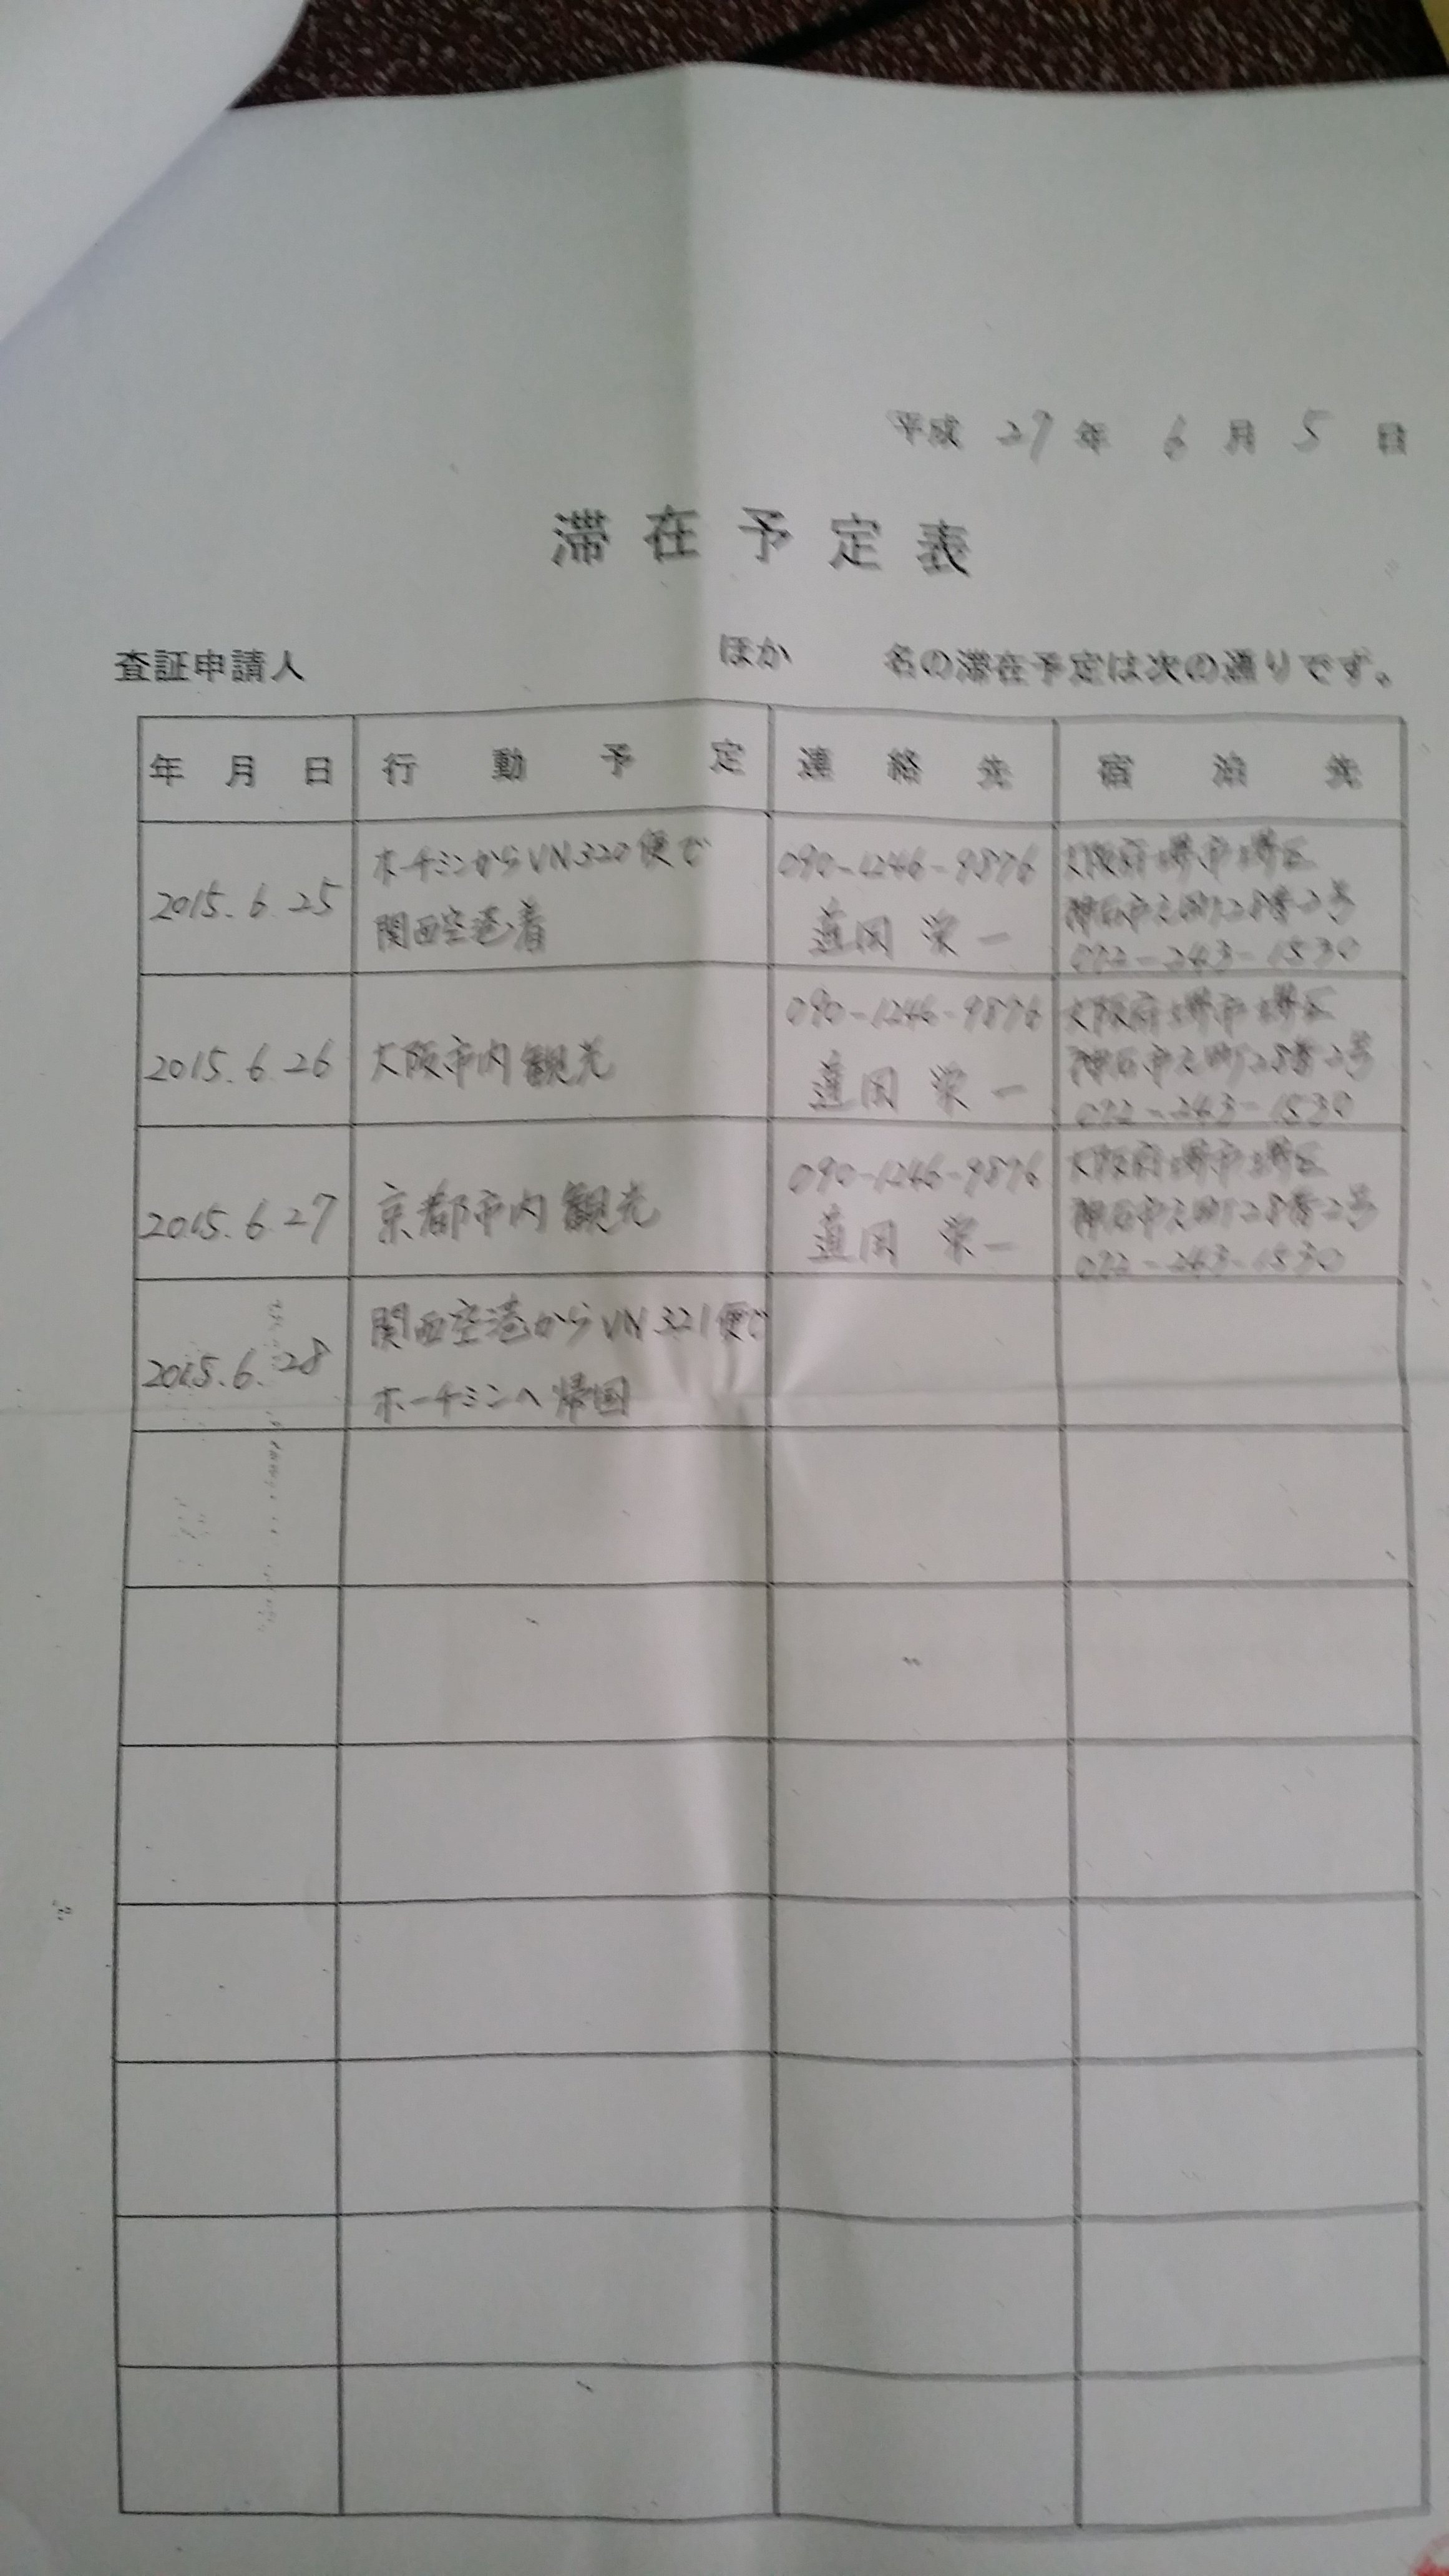 平成 27 年 6 月 5 日
滞在予定表
査証申請人 ほか 名の滞在予定は次の通りです。
年月日 行動予定 連絡先 宿泊先
2015.6.25
ホーチミンからVN320便で
関西空港着
090-1246-9876
蓮田 栄一
大阪府堺市堺区
神石市之町28番2号
072-243-1530
2015.6.26
大阪市内観光
090-1246-9876
蓮田 栄一
大阪府堺市堺区
神石市之町28番2号
072-243-1530
2015.6.27
京都市内観光
090-1246-9876
蓮田 栄一
大阪府堺市堺区
神石市之町28番2号
072-243-1530
2015.6.28
関西空港からVN321便で
ホーチミンへ帰国